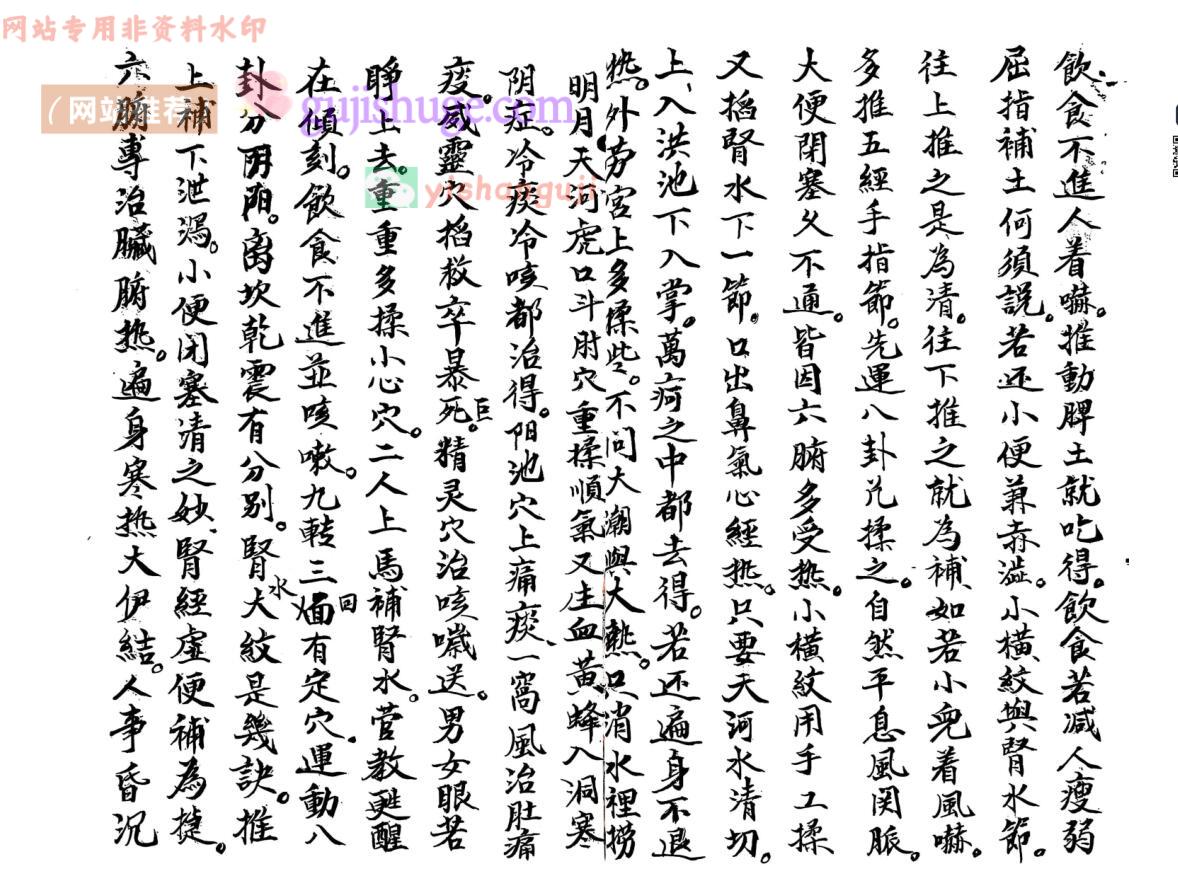 网站专用非资料水印
(网站推荐)
gujishuge.com
yishanguji
飲食不進人着嚇。推動脾土就吃得。飲食若减人瘦弱
屈指補土何須説。若还小便兼赤澁。小横紋與腎水節。
往上推之是為清。往下推之就為補、如若小兒着風嚇。
多推五經手指節。先運八卦允揉之。自然平息風関脈。
大便閉塞久不通。皆因六腑多受热。小横紋用手工揉
又搯腎水下一節。口出鼻氣心經热。只要天河水清切。
上、入洪池下入掌。萬疴之中都去得。若还遍身不退
热。外劳宫上多揉些。不问大潮與大熱。只消水裡撈
明月。天河虎口斗肘穴重揉順氣又生血黄蜂入洞寒
阴症。冷痰冷咳都治得。阳池穴上痛痰、一窩風治肚痛
疫。威靈穴搯救卒暴死。巨精灵穴治咳嘰送。男女眼若
睁上去。重重多揉小心穴。二人上馬補腎水。菅教甦醒
在傾刻。飲食不進並咳嗽。九轉三回有定穴。運動八
卦分阴阳。离坎乾震有分别。腎水大紋是幾訣。推
上補下泄瀉。小便闭塞清之妙、腎經虚便補為捷。
六腑專治臟腑热。遍身寒热大伊結。人事昏沉